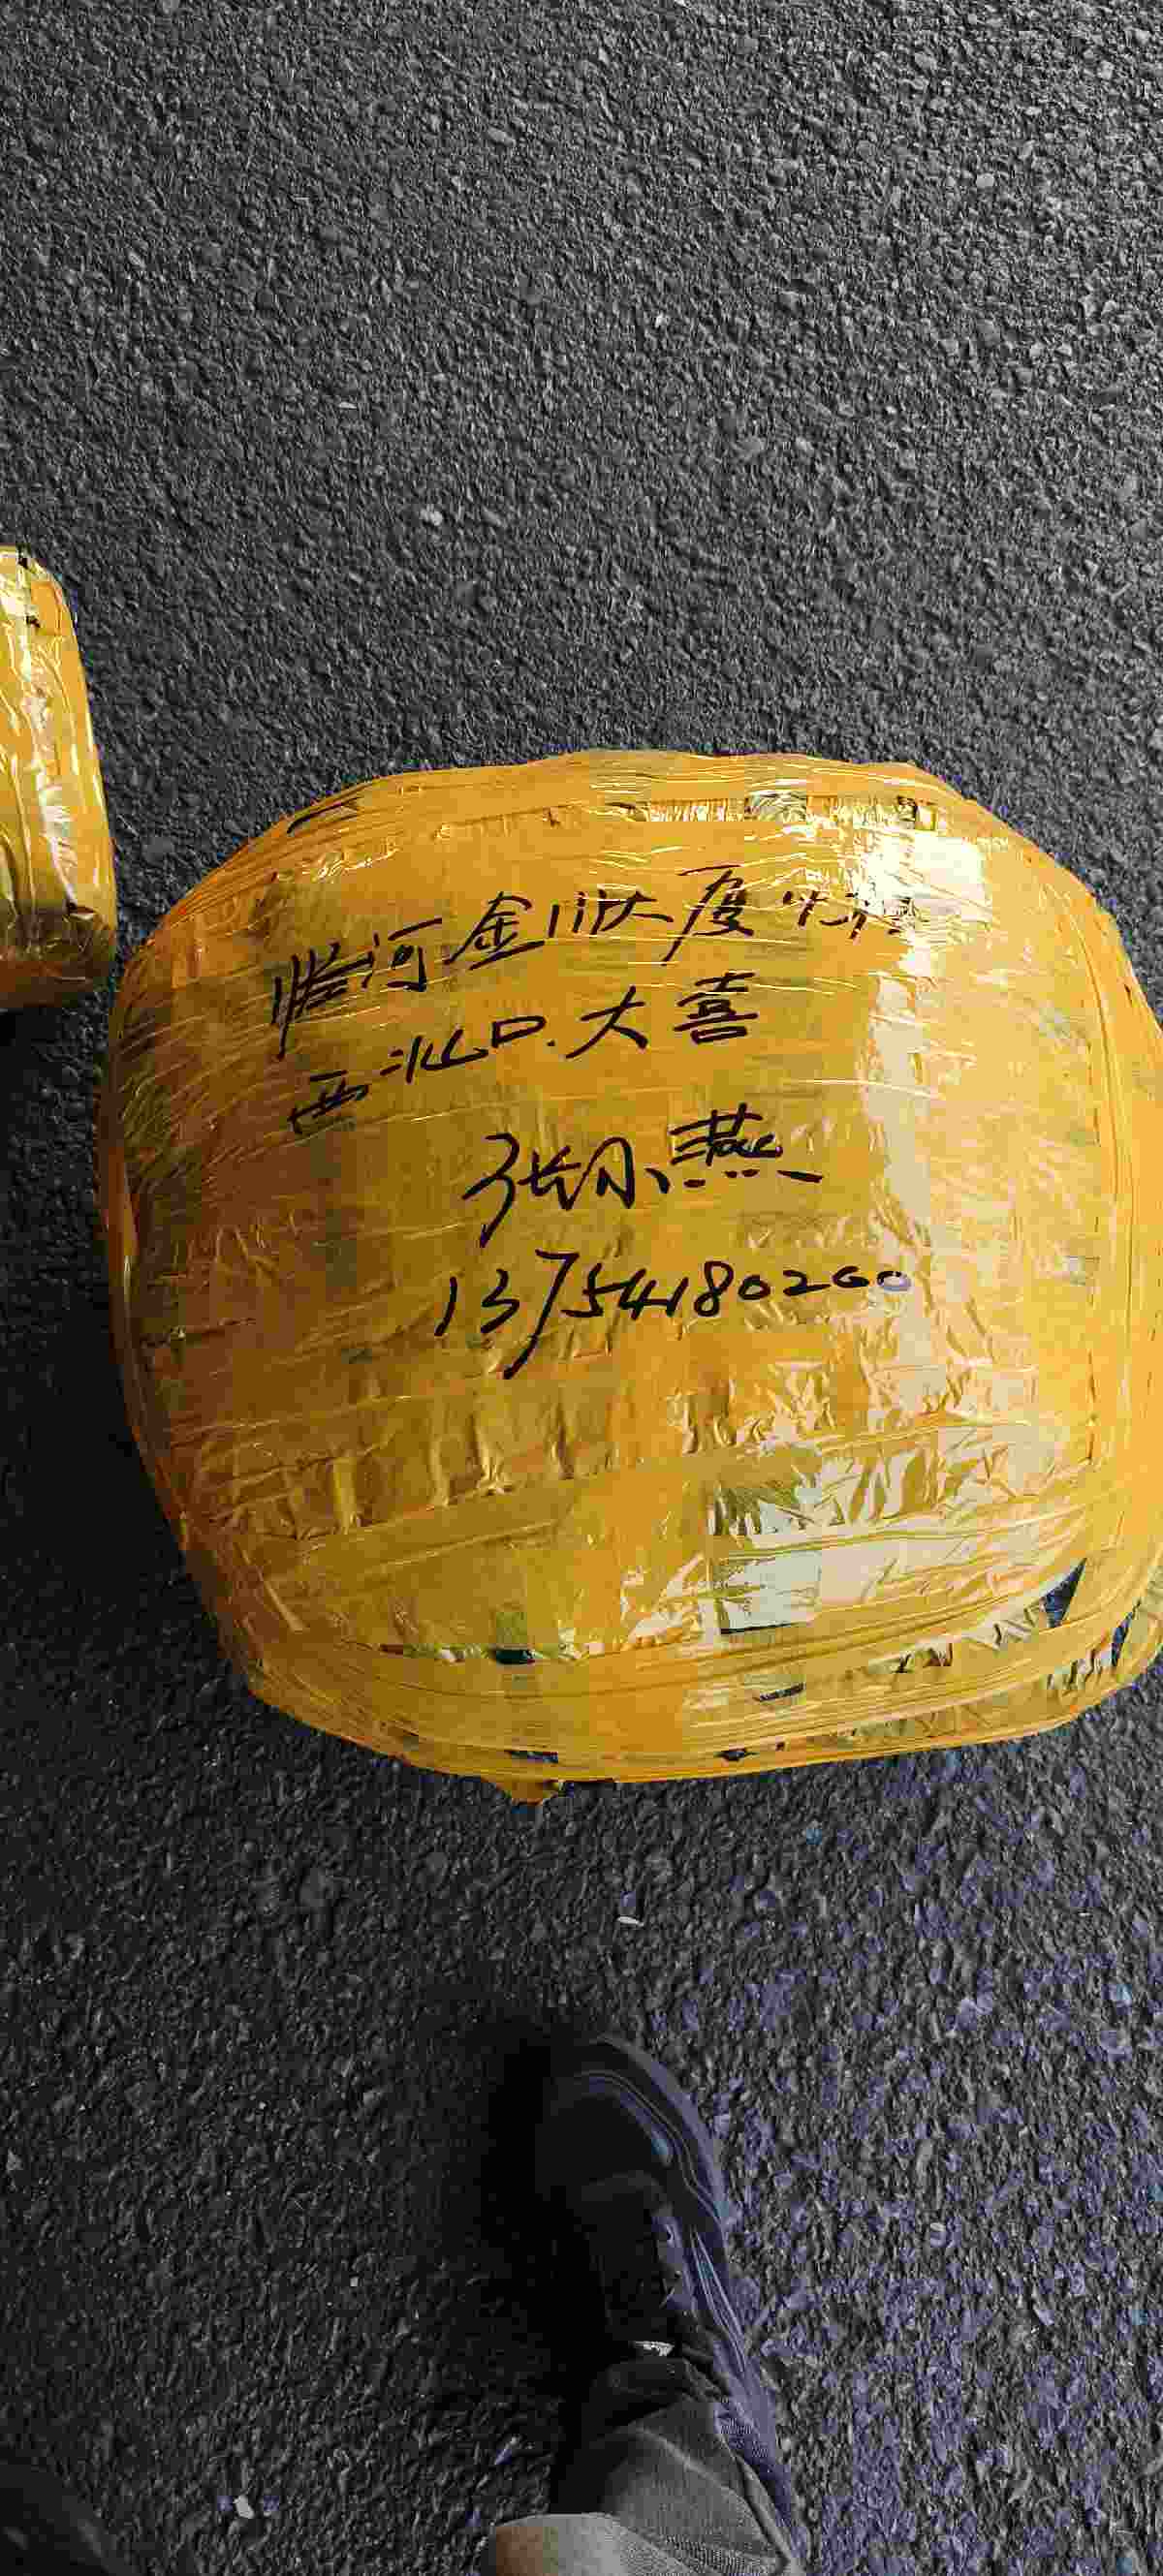 临河金川大厦
西北口.大喜
张小燕
13754180260